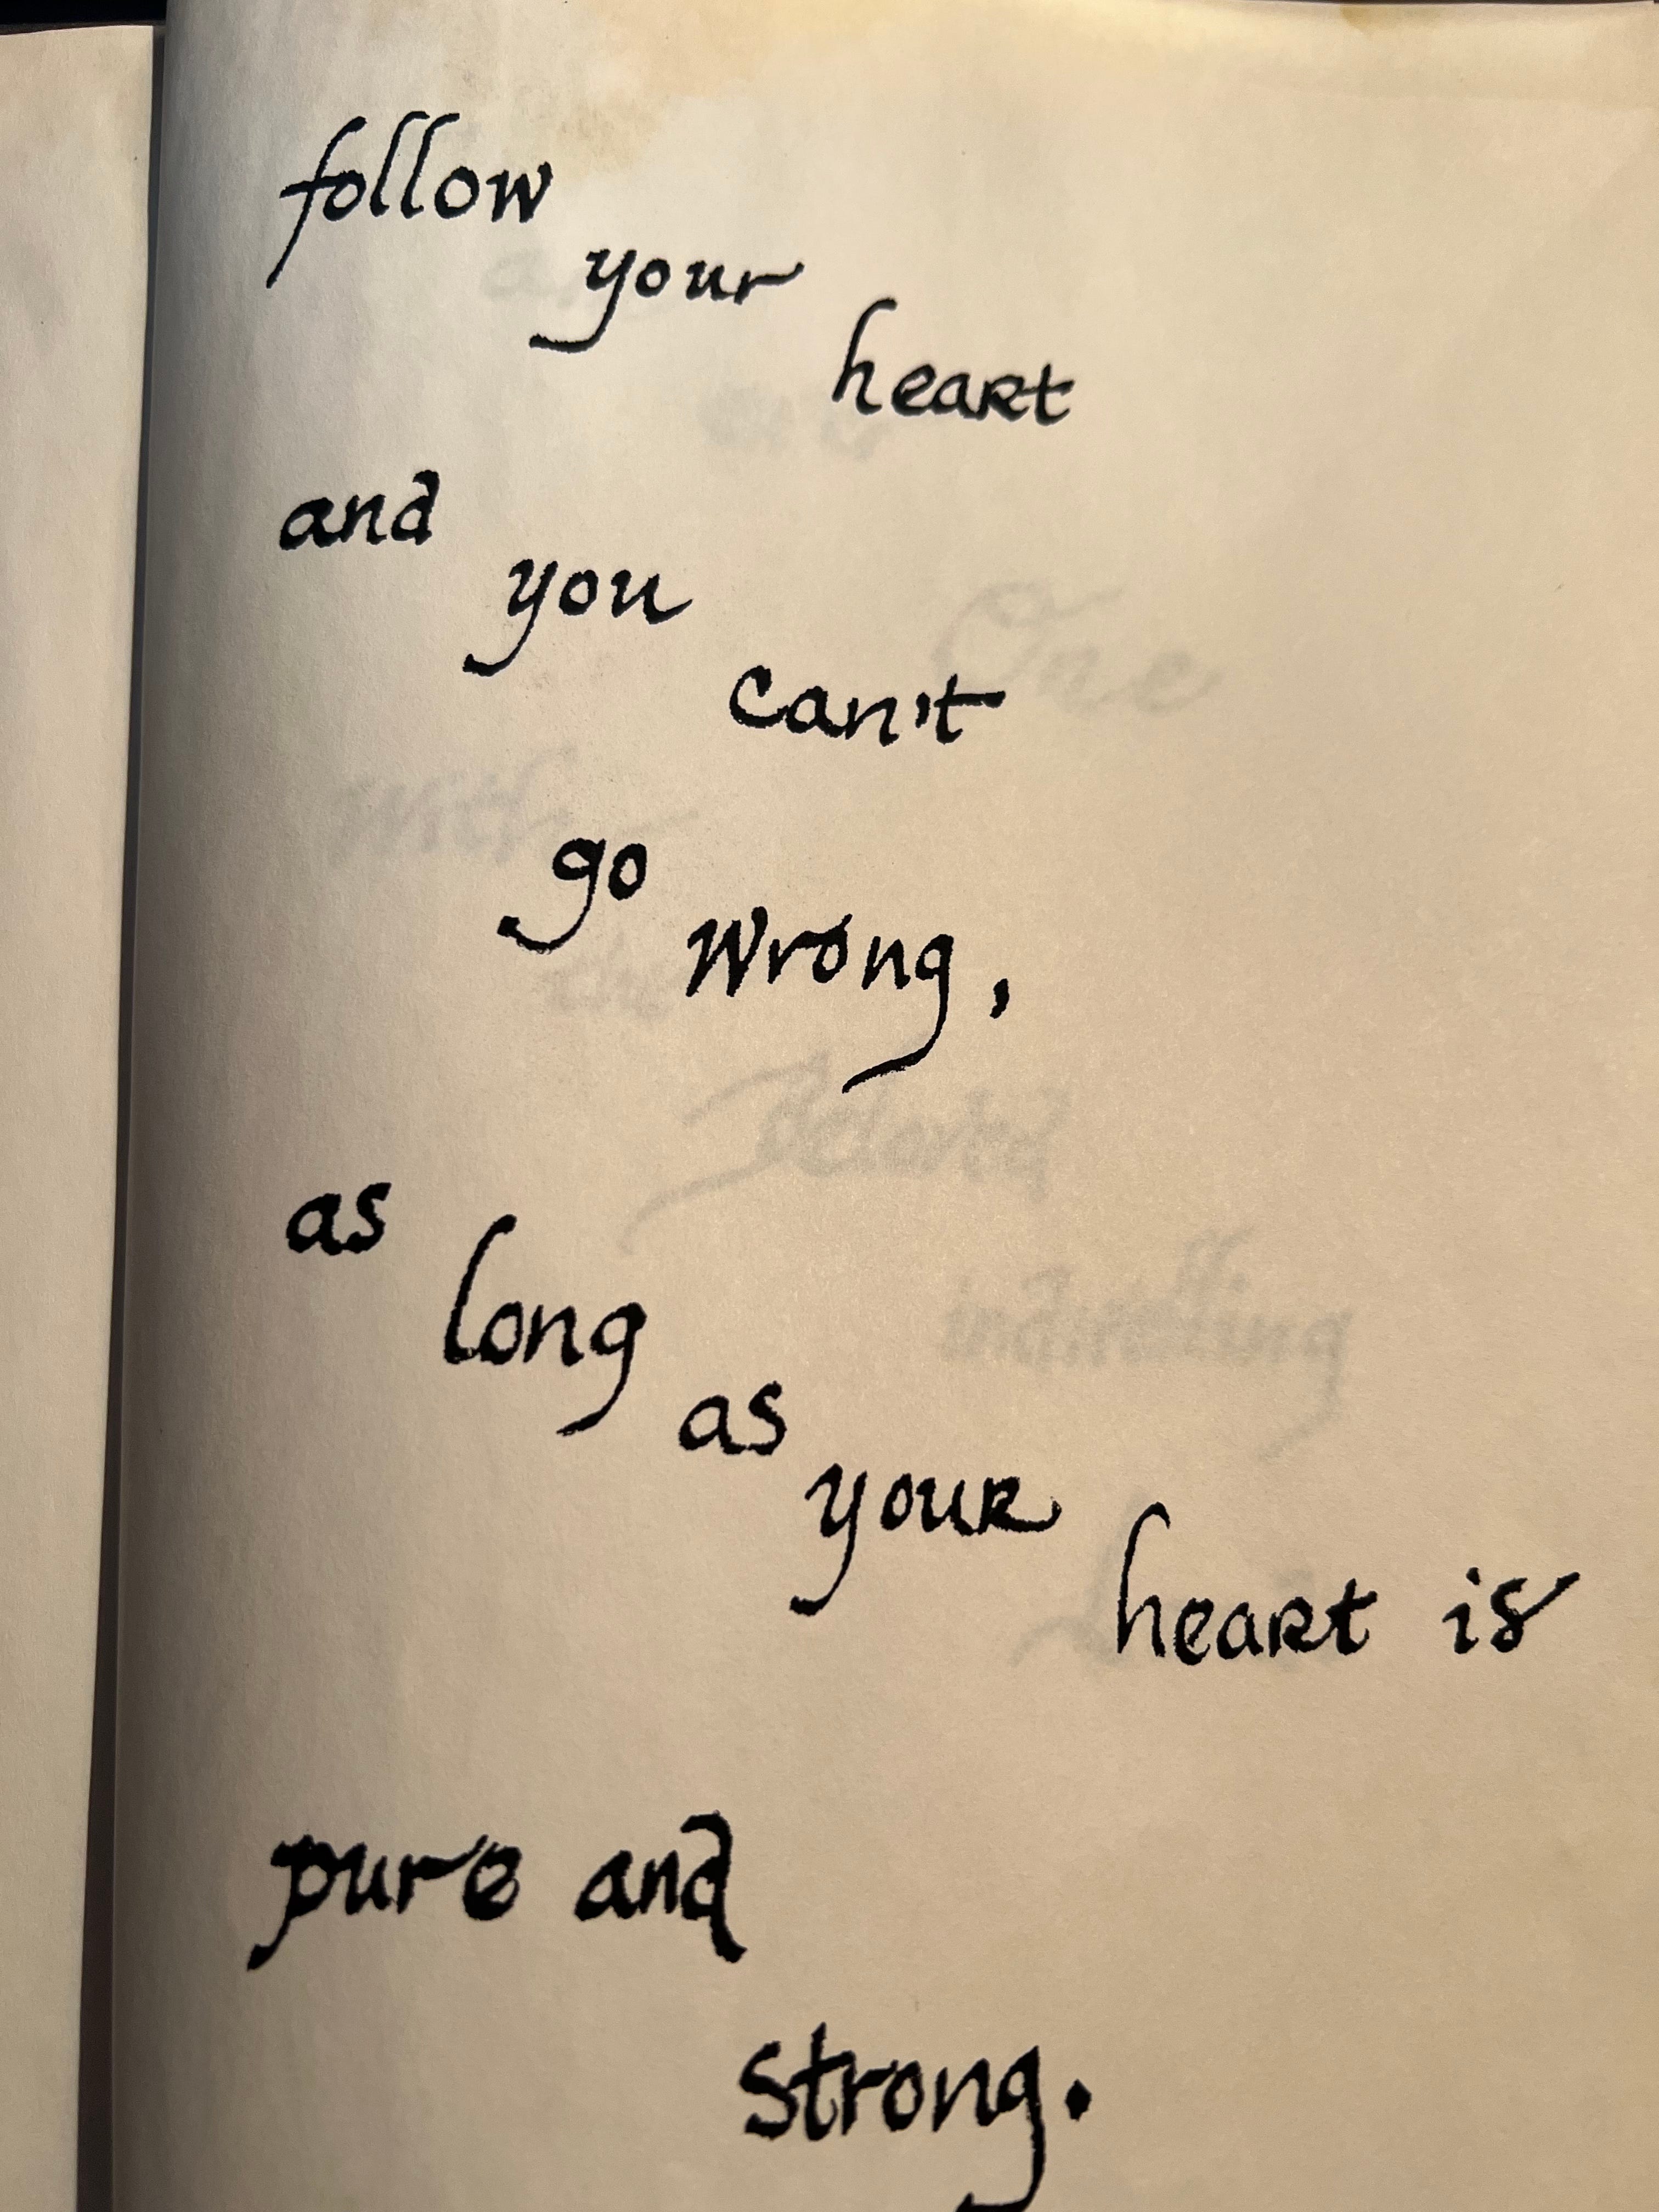 follow
your
heart
and
you
can't
go
wrong,
as
long
as
your
heart is
pure and
strong.